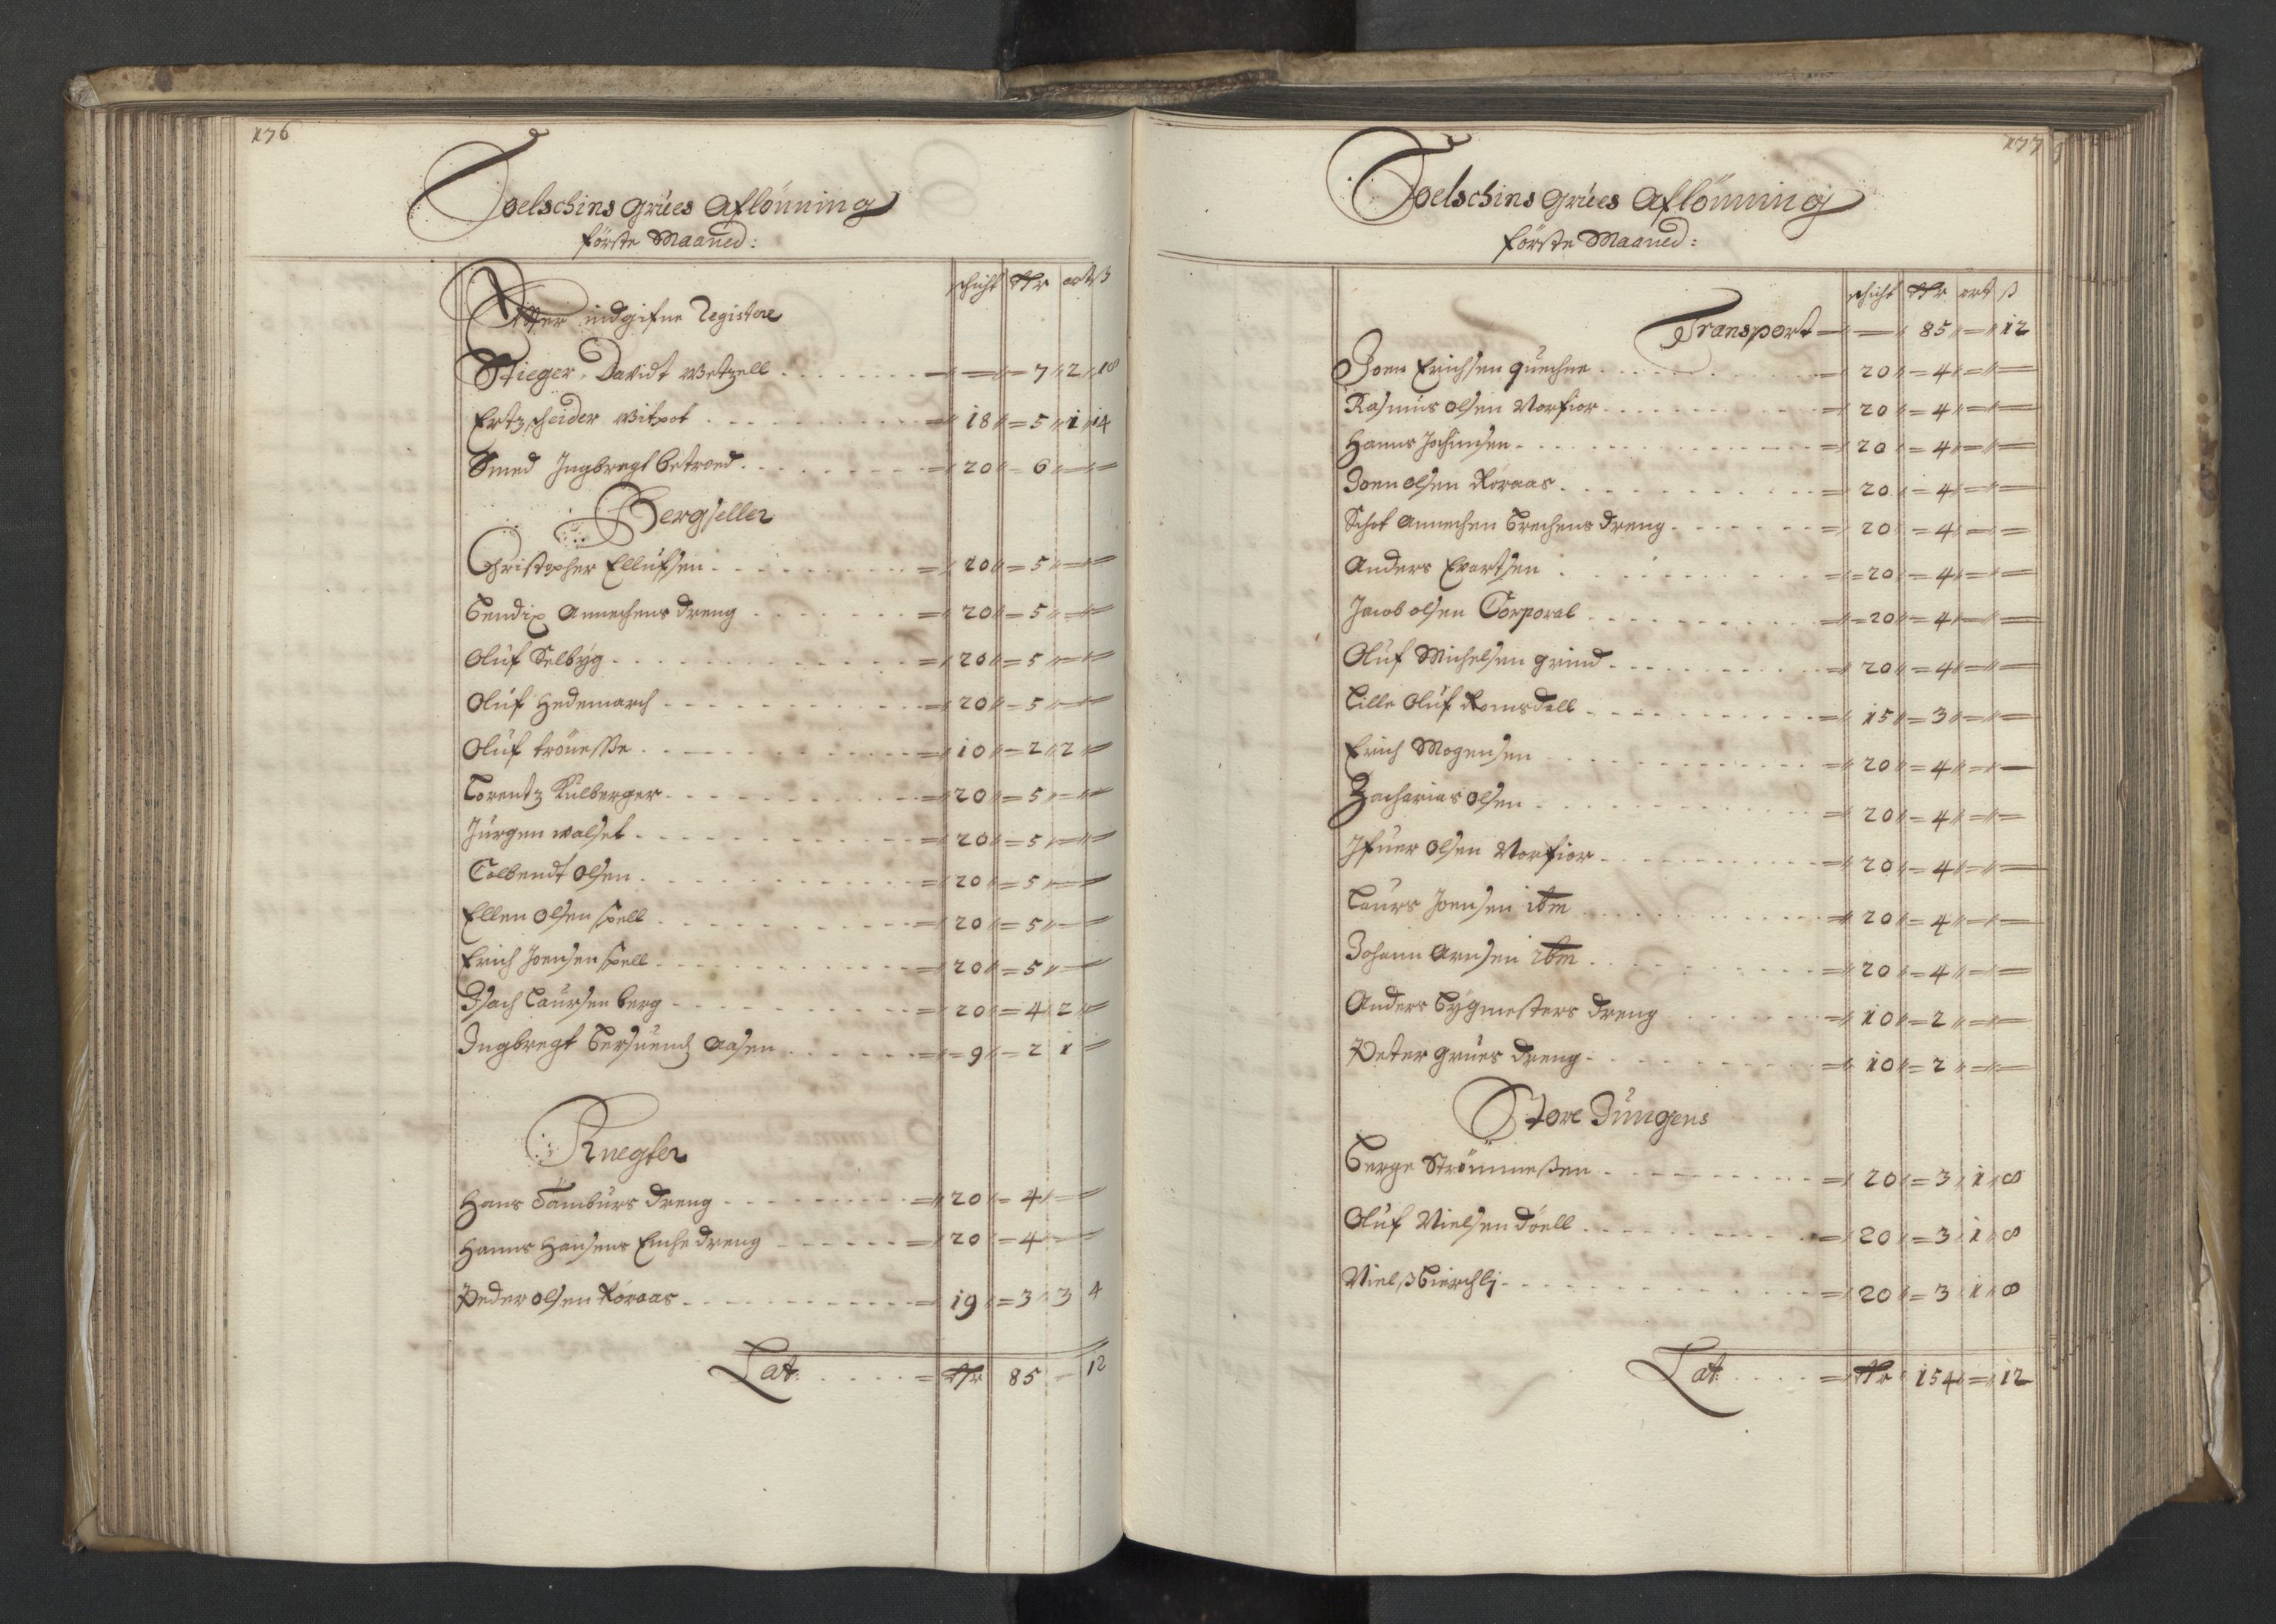 176
Joelschins Grues Aflönning
förste Maaned:
schicht Rdr ort ß
Effter indgifne Registere
Stieger, Davidt Wetzell - - 7 2 18
Ertzscheider Witpot 18 5 1 14
Smed Ingbregt 20 6 - -
Bergseller
Christopher Ellufsen 20 5 - -
Bendix Annechens dreng 20 5 - -
Oluf Selbyg 20 5 - -
Oluf Hedemarch 20 5 - -
Oluf trönesse 10 2 2 -
Lorentz Kulberger 20 5 - -
Jürgen walset 20 5 - -
Colbendt Olsen 20 5 - -
Ellen Olsen spell 20 5 - -
Erich Joensen spell 20 5 - -
Isach Laursen berg 20 4 2 -
Ingbregt Aasen 9 2 1 -
Knegter
Hans Tambürs dreng 20 4 - -
Hanns Hansens Enche dreng 20 4 - -
Peder Olsen Röraas 19 3 3 4
Lat: Rdr 85 - 12
177
Joelschins Grues Aflönning
förste Maaned:
schicht Rdr ort ß
Transport - 85 - 12
Joen Erichsen quechne 20 4 - -
Rasmus Olsen Norfior 20 4 - -
Hanns Jochimsen 20 4 - -
Joen Olsen Röraas 20 4 - -
Schot Annechen Brechens dreng 20 4 - -
Anders Evertsen 20 4 - -
Jacob Olsen Corporal 20 4 - -
Oluf Michelsen grind 20 4 - -
Lille Oluf Romsdall 15 3 - -
Erich Mogensen 20 4 - -
Zacharias Olsen 20 4 - -
Ifuer Olsen Norfior 20 4 - -
Laurs Joensen ibm 20 4 - -
Johann Arnsen ibm 20 4 - -
Anders Bygmesters dreng 10 2 - -
Peter grues dreng 10 2 - -
Store Jungens
Berge Strömmessen 20 3 1 8
Oluf Nielsen döell 20 3 1 8
Nielß Bierchlj 20 3 1 8
Lat: Rdr 154 - 12